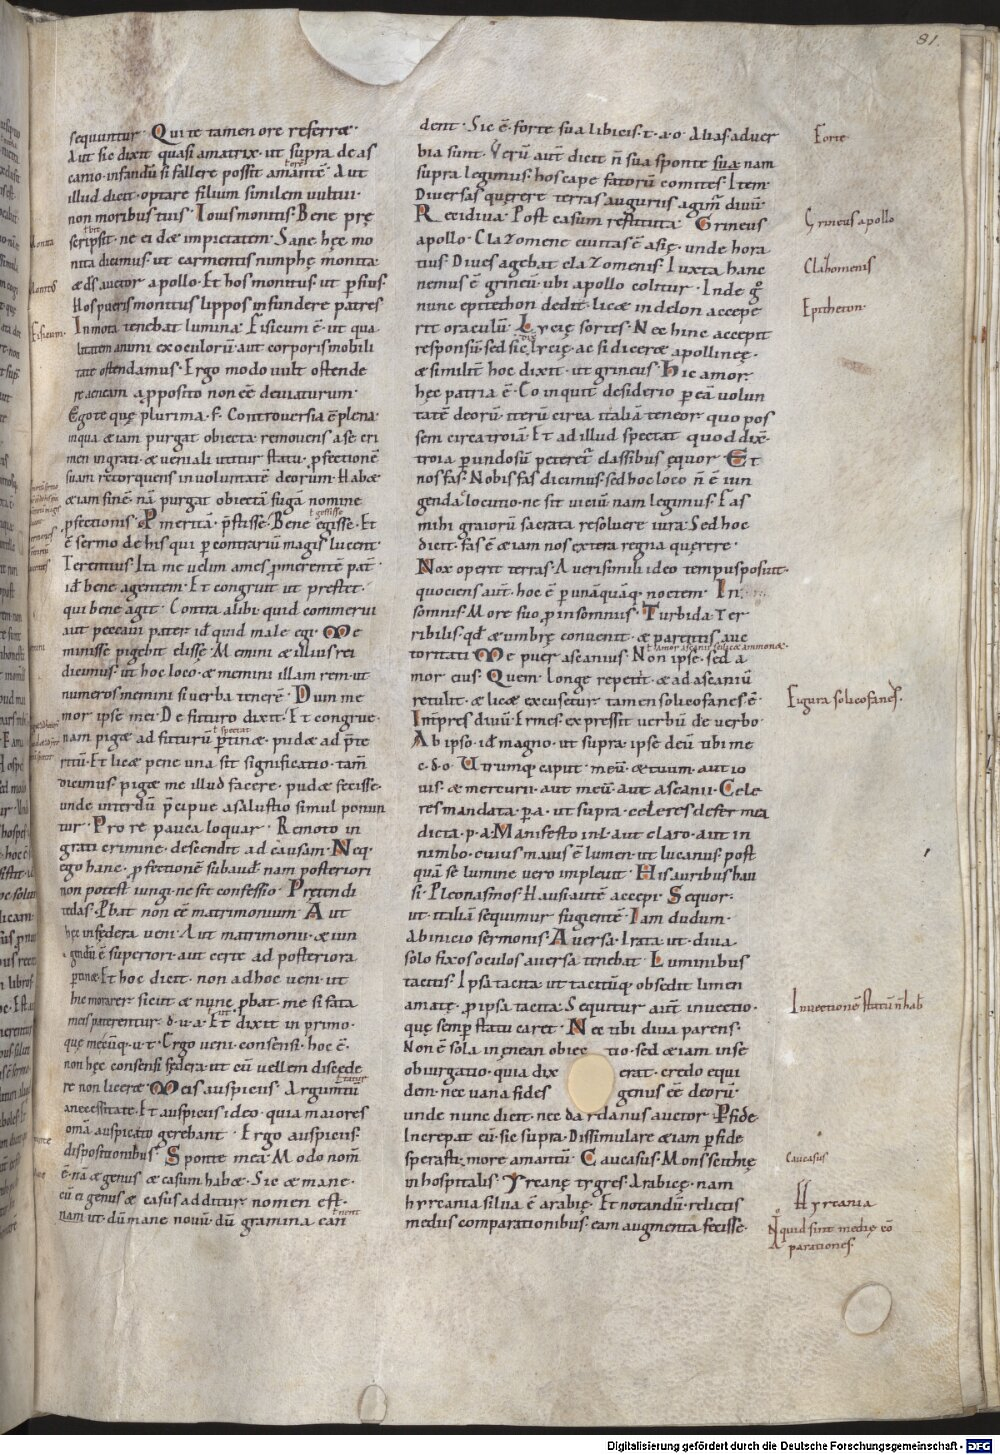 81.
sequuntur. Qui te tamen ore referræ.
Aut sic dixit quasi amatrix. ut supra de as
canio. infandū si fallere possit amantē. Aut
illud dicit. optare filium similem uultui.
non moribus tuis. Iouis monitis. Bene prę
scripsit. ne ei det impietatem. Sane hęc mo
nita dicimus. ut carmentis nimphę monita.
& ds auctor apollo. Et hos monitus. ut psius.
Hos pueris monitus lippos infundere patres
Inmota tenebat lumina. Fisicum ē. ut qua
litatem animi ex oculorū aut corporis mobili
tate ostendamus. Ergo modo uult ostende
re aeneam apposito non eē deuiaturum.
Ego te quę plurima. f. Controuersia ē plena.
in qua & iam purgat obiecta. remouens a se cri
men ingrati. & ueniali utitur statu. pfectionē
suam retorquens in uoluntatē deorum. Habet
& iam finē. nā purgat obiectā fugā nomine
pfectionis. Pmeritā. pstitisse. Bene egisse. Et
ē sermo de his qui p contrariū magis lucent.
Terentius. Ita me uelim ames pmerentē pat
id bene agentem. Et congruit ut prestet.
qui bene agit. Contra alibi quid commerui
aut peccaui pater. id quid male egi. Me
minisse pigebit elisse. Memini & illius rei
dicimus. ut hoc loco. & memini illam rem. ut
numeros memini si uerba tenerē. Dum me
mor ipse mei. De futuro dixit. Et congrue.
nam piget ad futurū ptinet. pudet ad pte
ritū. Et licet pene una sit significatio. tam
dicimus. piget me illud facere. pudet fecisse.
unde interdū pcipue a salustio simul ponun
tur. Pro re pauca loquar. Remoto in
grati crimine. descendit ad causam. Neq.
ego hanc. pfectionē subaud. nam posteriori
non potest iungi. ne sit confessio. Pretendi
tedas. Pbat non eē matrimonium. Aut
hęc in fędera ueni. Aut matrimonii. & iun
gendū ē superiori. aut certe ad posteriora
ptinet. Et hoc dicit. non ad hoc ueni. ut
hic morarer. sicut & nunc pbat. me si fata
meis paterentur. d. u. a. Et dixit in primo.
que mecūq. u. t. Ergo ueni. consensi. hoc ē.
non hęc consensi fędera. ut eū uellem discede
re non licere. Meis auspiciis. Argumtū
a necessitate. Et auspiciis ideo. quia maiores
omā auspicato gerebant. Ergo auspiciis.
dispositionibus. Sponte meā. Modo nom
ē. nā & genus & casum habet. Sic & mane.
cū ei genus & casus additur nomen est.
nam ut. dū mane nouū. dū gramina can
dent. Sic ē. forte sua libicis. t. a. o. Alias aduer
bia sunt. Verū aut dicit ñ sua sponte sua. nam
supra legimus. hos cape fatorū comites. Item.
Diuersas quęrere terras auguriis agim diuū.
Recidiua. Post casum restituta. Grineus
apollo. Clazomene ciuitas ē asię. unde hora
tius. Diues agebat clazomenis. Iuxta hanc
nemus ē grineū. ubi apollo colitur. Inde g
nunc epitethon dedit. licet in delon accepe
rit oraculū. Lycię sortes. Nec hinc accepit
responsū. sed sic lycię. ac si diceret apollineę.
& similit hoc dixit. ut grineus. Hic amor.
hęc patria ē. Co inquit desiderio p eā uolun
tatē deorū. iterū circa italiā teneor. quo pos
sem circa troiā. Et ad illud spectat quod dix.
troia p undosū peteret classibus ęquor. Et
nos fas. Nobis fas dicimus. sed hoc loco ñ ē iun
genda locutio. ne sit uiciū. nam legimus. Fas
mihi graiorū sacrata resoluere iura. Sed hoc
dicit. fas ē & iam nos extera regna quęrere.
Nox operit terras. A uerisimili ideo tempus posuit.
quociens aut. hoc ē p unāquāq noctem. In
somnis. More suo p in somnus. Turbida. Ter
ribilis. qd & umbrę conuenit. & parentis auc
toritati. Me puer ascanius. Non ipse. sed a
mor eius. Quem longe repetit. & ad ascaniū
retulit. & licet excusetur. tamen solicofanes. ē
Inpres diuū. Ermes. expressit uerbū de uerbo
Ab ipso. id magno. ut supra. ipse deū tibi me
c. d. o. Utrumq caput. meū. & tuum. aut io
uis. & mercurii. aut meū. aut ascanii. Cele
res mandata. p. a. ut supra. celeres defer mea
dicta. p. a. Manifesto inl. aut claro. aut in
nimbo. cuius maius ē lumen. ut lucanus. post
quā se lumine uero impleuit. His auribus hau
si. Pleonasmos. Hausi autē accepi. Sequor.
ut. italiā sequimur fugientē. Iam dudum.
Ab inicio sermonis. Auersa. Irata. ut. diua
solo fixos oculos auersa tenebat. Luminibus
tacitis. Ipsa tacita. ut tacitūq obsedit limen
amatę. p ipsa tacita. Sequitur aūt inuectio.
quę semp statu caret. Nec tibi diua parens.
Non ē sola in ęnean obiec tio. sed & iam in se
obiurgatio. quia dix erat. credo equi
dem. nec uana fides genus eē deorū.
unde nunc dicit. nec dardanus auctor. Pfide.
Increpat eū. sic supra. Dissimulare & iam pfide
sperasti. more amantū. Caucasus. Mons scithię
inhospitalis. Yrcanę tygres. Arabicę. nam
hyrcania silua ē arabię. Et notandū. relictis
mediis comparationibus. eam augmenta fecisse.
Forte
Grineus apollo
Clazomenis
Epitheton.
Figura solicofanes.
Inuectionē statū ñ hab
Caucasus
Hyrcania
N quid sint medię cō
parationes.
Digitalisierung gefördert durch die Deutsche Forschungsgemeinschaft - DFG